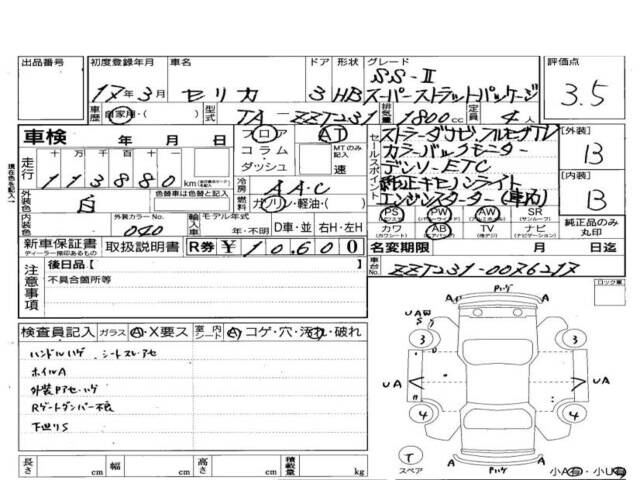 出品番号 初度登録年月 車名 ドア 形状 グレード 評価点
17年3月 セリカ 3 HB SS-II
スーパーストラットパッケージ 3.5
車歴 自家用・( ) 型式 TA-ZZT231 排気量 1800cc 定員 4人
車検 年 月 日 フロア AT
コラム・ダッシュ MTのみ記入 速
セールスポイント ストラーダナビ、フルセグTV
カラーバックモニター
デンソーETC
純正キセノンライト
エンジンスターター(車助)
[外装] B
[内装] B
走行 十万千百十一
113880km
外装色 白 色替車は色替と記入
冷房 AAC
燃料 ガソリン・軽油・( )
内装色 外装カラーNo. 040
輸入車 モデル年式 年・不明 D車・並 右H・左H
PS PW AW SR(サンルーフ)
カワ(カワシート) AB TV ナビ(ナビゲーション)
純正品のみ丸印
新車保証書 取扱説明書 R券 ¥10.600
名変期限 月 日迄
車台No. ZZT231-0076217
注意事項 後日品【 】
不具合箇所等
ロック車
検査員記入 ガラス A・X要ス 室内シート A コゲ・穴・汚れ・破れ
ハンドルハゲ シートスレアセ
ホイルA
外装Pアセ・ハゲ
Rゲートダンパー不良
下廻りS
A Pハゲ A
UAW
S
3 3
UA UA
4 4
T
スペア
A Pハゲ A
小A有・小U有
長さ cm 幅 cm 高さ cm 積載量 kg